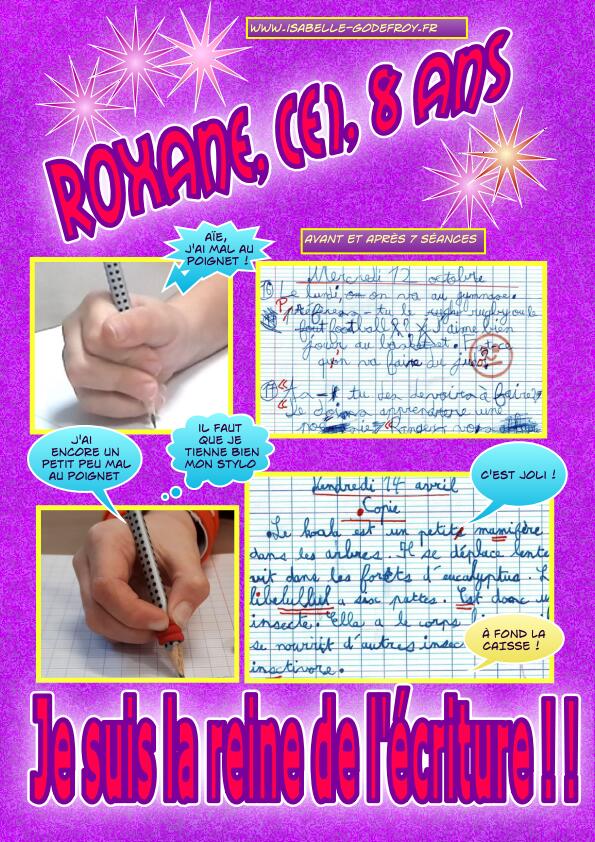 WWW.ISABELLE-GODEFROY.FR
ROXANE, CE1, 8 ANS
AVANT ET APRÈS 7 SÉANCES
AÏE,
J'AI MAL AU
POIGNET !
Mercredi 12 octobre
Le lundi, on on va au gymnase.
Préfères-tu le rugby ou le
football? J'aime bien
jouer au basket.
qu'on va faire du judo?
tu des devoirs à faire?
Je dois apprendre une
J'AI
ENCORE UN
PETIT PEU MAL
AU POIGNET
IL FAUT
QUE JE
TIENNE BIEN
MON STYLO
C'EST JOLI !
Vendredi 14 avril
Copie
Le koala est un petit mamifère
dans les arbres. Il se déplace lente
dans les forêts d'eucalyptus. L
a six pattes. Est donc u
insecte. Elle a le corps
se nourrit d'autres insec
insctivore.
À FOND LA
CAISSE !
Je suis la reine de l'écriture ! !